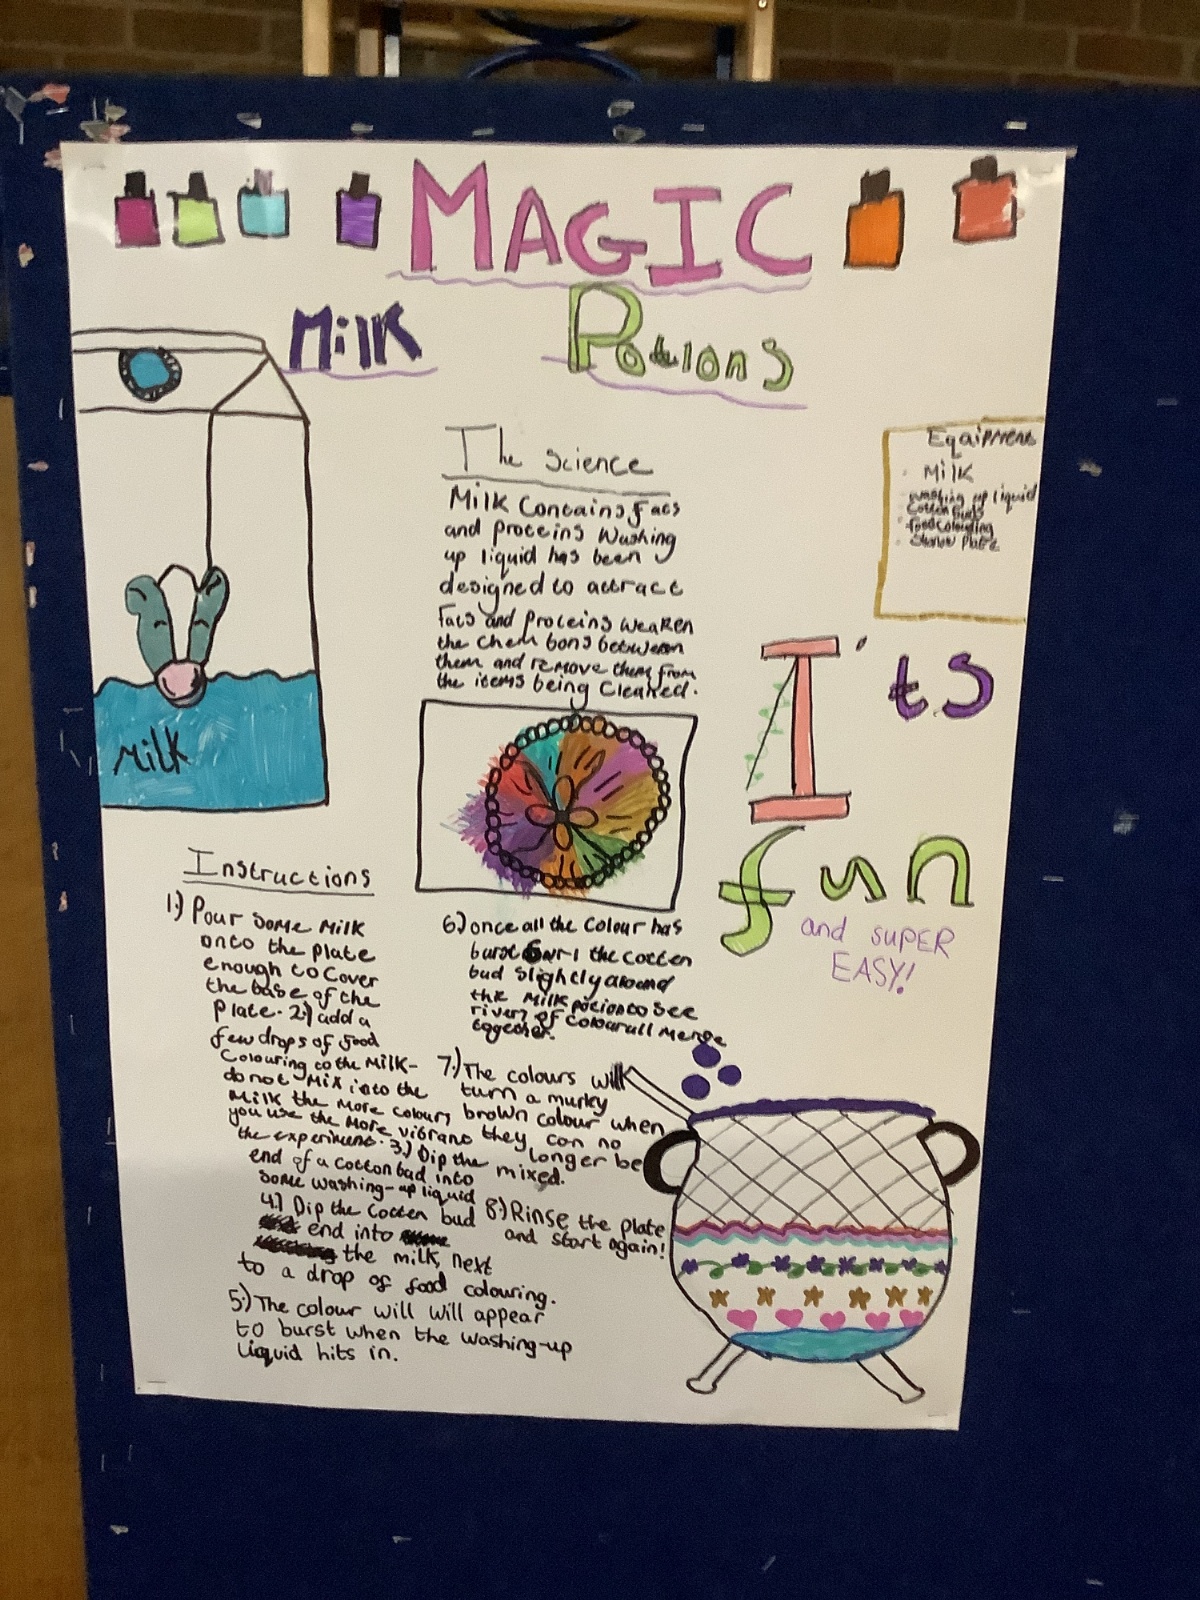 MAGIC
Milk Potions
The science
Milk Contains fats
and proteins Washing
up liquid has been
designed to attract
Fats and Proteins weaken
the chem bons between
them and remove them from
the items being Cleaned.
Eqaipment
Milk
washing up liquid
Cotten buds
food colouding
Plate
Milk
It's
fun
and SUPER
EASY!
Instructions
1.) Pour some Milk
onto the plate
enough to Cover
the base of the
Plate. 2.) add a
few drops of food
Colouring to the Milk-
do not Mix into the
Milk the More colours
you use the More vibrant
the experiment. 3.) Dip the
end of a cotton bad into
some washing-up liquid
4.) Dip the Cotten bud
end into
the milk, next
to a drop of food colouring.
5.) The colour will will appear
to burst when the washing-up
liquid hits in.
6.) once all the Colour has
burst the cotten
bud slightly around
the Milk potion to see
rivers of Colourall Merge
together.
7.) The colours will
turn a murky
brown colour when
they can no
longer be
mixed.
8.) Rinse the plate
and start again!